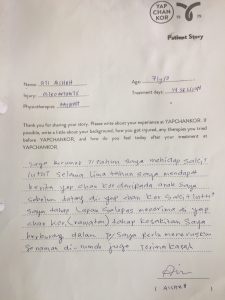 YAP
CHAN
KOR
19 75
Patient Story
Name: Age: 71 y/o
Injury: Treatment days:
Physiotherapist:
Thank you for sharing your story. Please write about your experience at YAPCHANKOR. If
possible, write a little about your background, how you got injured, any therapies you tried
before YAPCHANKOR, and how do you feel today after your treatment at
YAPCHANKOR.
Saya berumur 71 tahun saya menghidap sakit
lutut selama lima tahun saya mendapat
berita yap chan kor daripada anak saya
sebelum datang di yap chan kor sakit lutut
saya tahap lapan selepas menerima di yap
chan kor (rawatan) tahap kesakitan saya
berkurang dalam saya boleh meneruskan
senaman di rumah juga Terima kasih